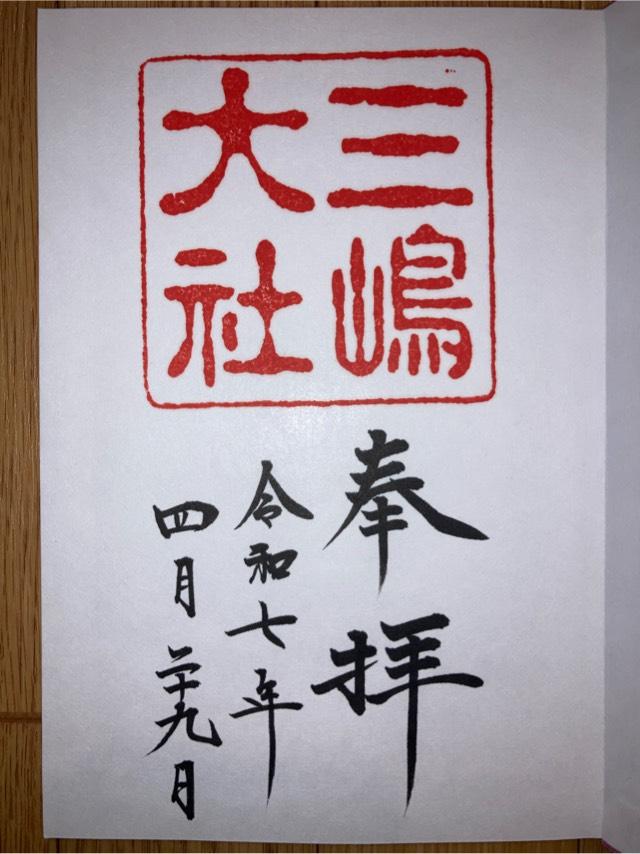 三嶋
大社
奉拝
令和七年
四月二十九日